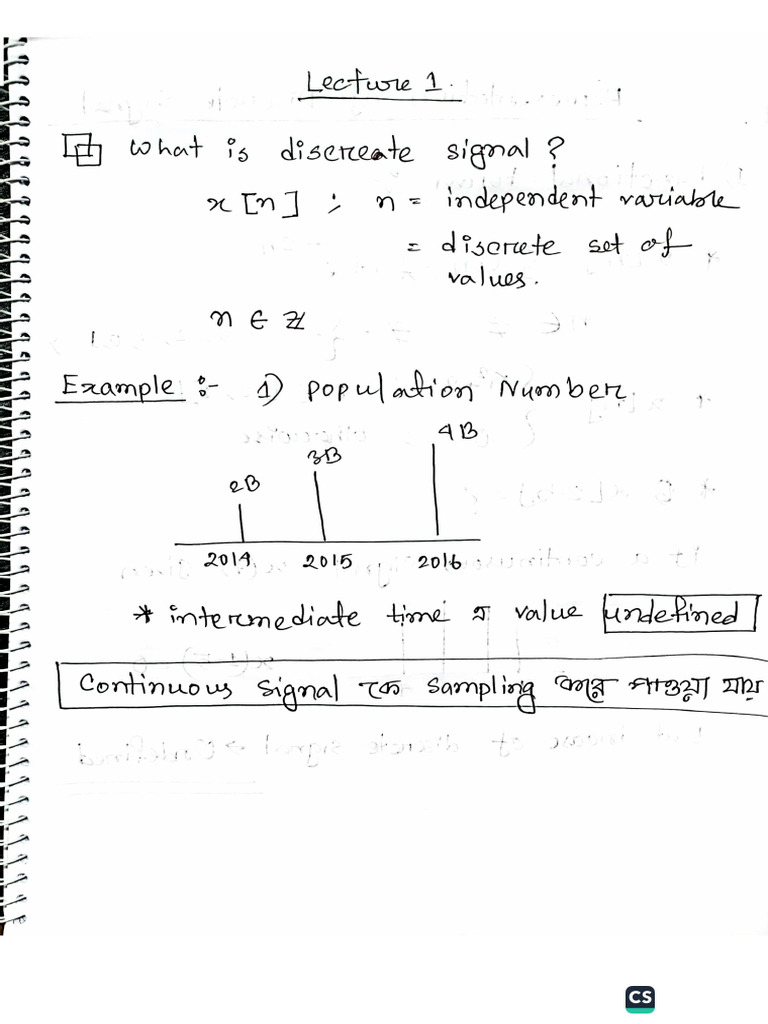 Lecture 1.
What is discreate signal?
x[n] ; n = independent variable
= discrete set of
values.
n ∈ Z
Example :- 1) Population Number
2B 3B 4B
2014 2015 2016
* intermediate time এ value undefined
Continuous signal কে sampling করলে পাওয়া যায়
CS